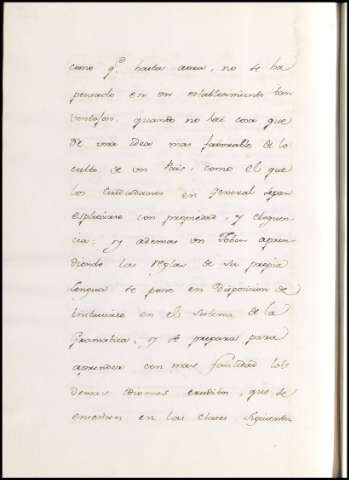 como q.e hasta aora, no se ha
pensado en un establecimiento tan
ventajoso, quanto no hai cosa que
de una idea mas favorable de lo
culto de un Pais, como el que
los Ciudadanos en general sepan
explicarse con propiedad, y eloquen
cia; y ademas un Joben apren
diendo las reglas de su propia
lengua se pone en Disposicion de
instruirse en el sistema de la
Gramatica, y se prepara para
aprender con mas facilidad los
demas Idiomas eruditos, que se
enseñan en las clases siguientes